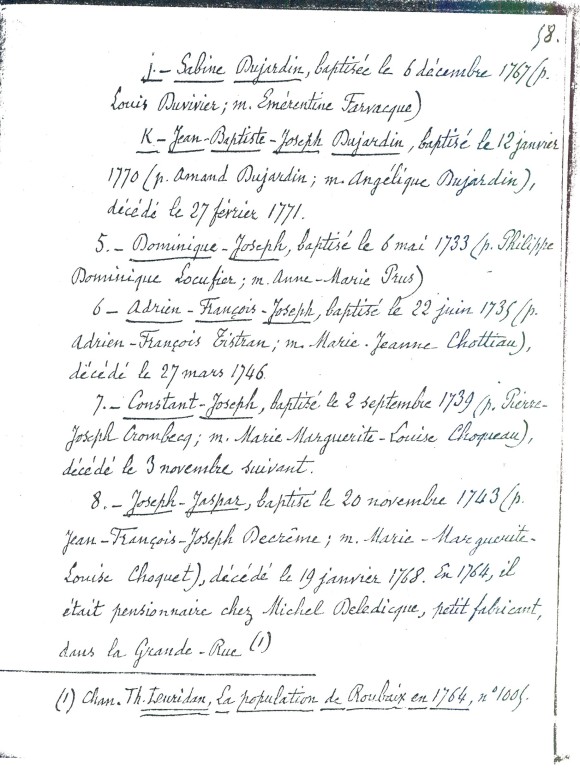 58.
j.- Sabine Dujardin, baptisée le 6 décembre 1767 (p.
Louis Duvivier ; m. Emérentine Farvacque)
K - Jean-Baptiste-Joseph Dujardin, baptisé le 12 janvier
1770 (p. Amand Dujardin ; m. Angélique Dujardin),
décédé le 27 février 1771.
5.- Dominique-Joseph, baptisé le 6 mai 1733 (p. Philippe
Dominique Locufier ; m. Anne-Marie Prus)
6 - Adrien-François-Joseph, baptisé le 22 juin 1735 (p.
Adrien-François Tistran ; m. Marie-Jeanne Chottiau),
décédé le 27 mars 1746.
7.- Constant-Joseph, baptisé le 2 septembre 1739 (p. Pierre-
Joseph Crombecq ; m. Marie Marguerite-Louise Choqueau),
décédé le 3 novembre suivant.
8.- Joseph-Jaspar, baptisé le 20 novembre 1743 (p.
Jean-François-Joseph Decrême ; m. Marie-Marguerite-
Louise Choquet), décédé le 19 janvier 1768. En 1764, il
était pensionnaire chez Michel Deledicque, petit fabricant,
dans la Grande-Rue (1)
(1) Chan. Th. Leuridan, La population de Roubaix en 1764, n° 1005.